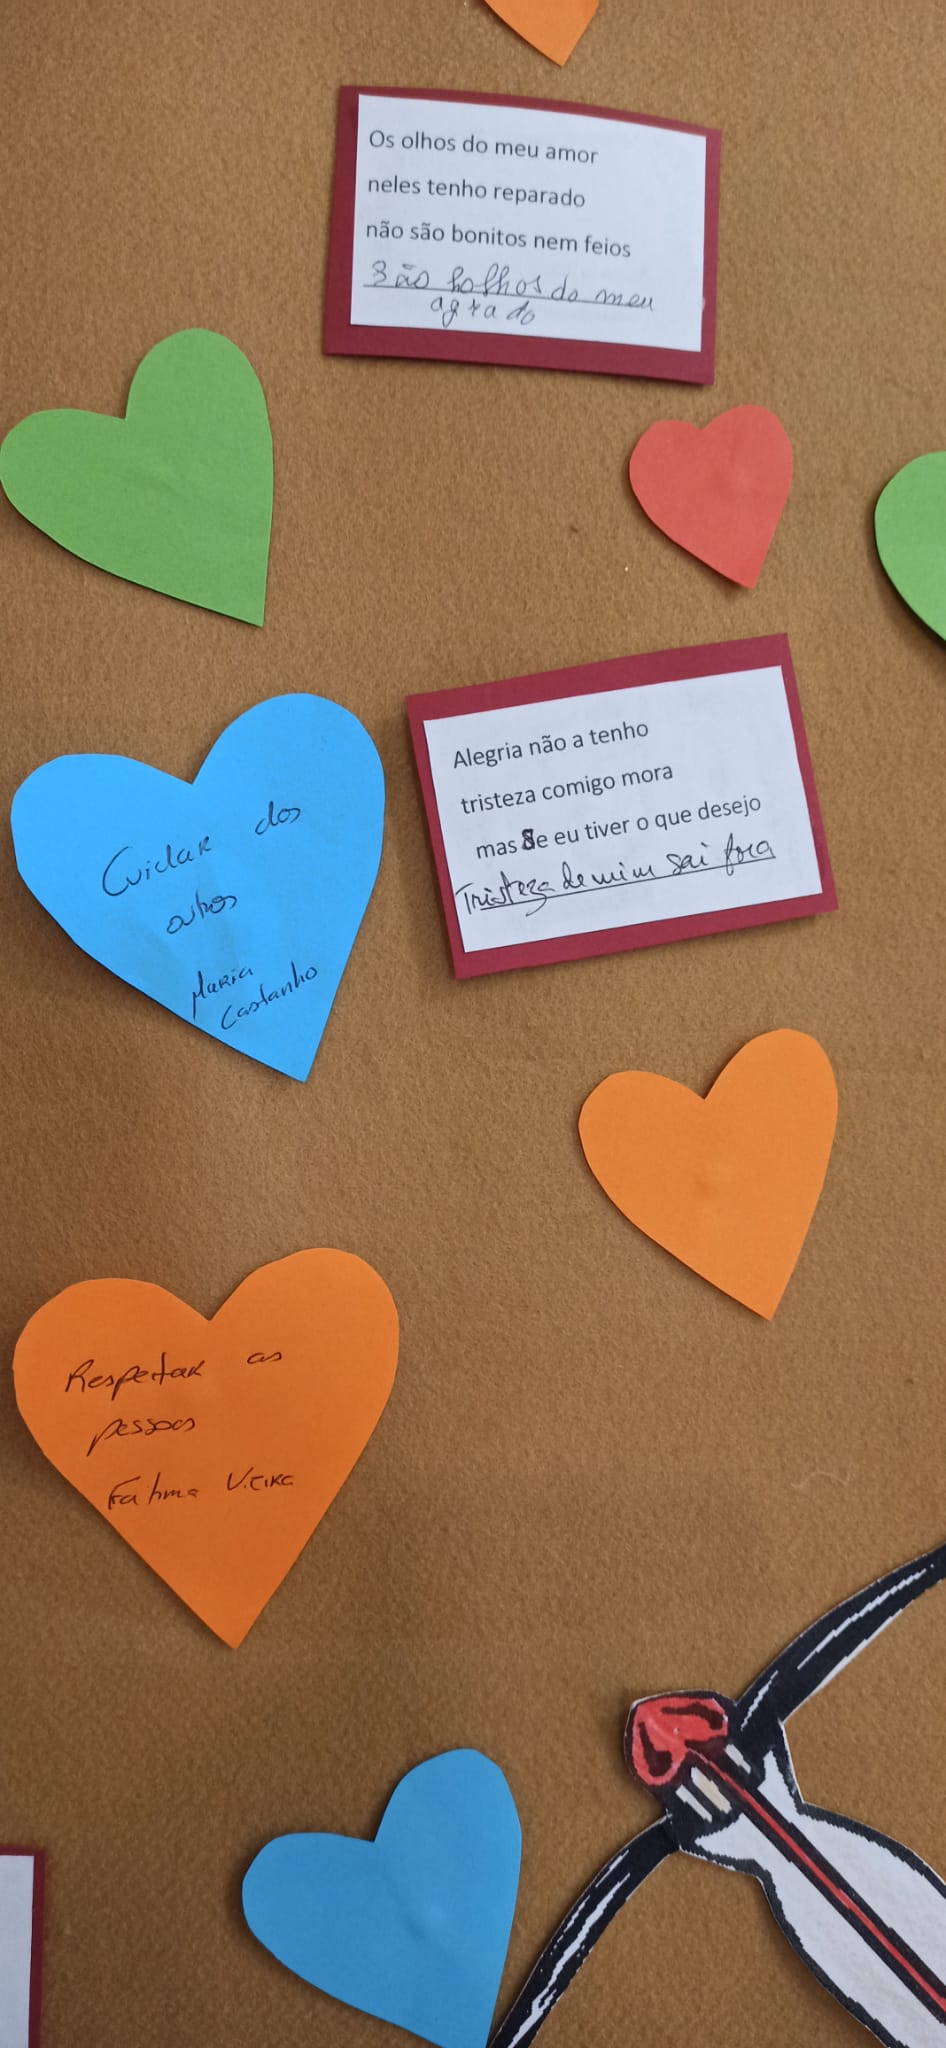 Os olhos do meu amor
neles tenho reparado
não são bonitos nem feios
São holhos do meu
agrado
Alegria não a tenho
tristeza comigo mora
mas Se eu tiver o que desejo
Tristeza de mim sai fora
Cuidar dos
outros
Maria
Castanho
Respeitar as
pessoas
Fátima Vieira